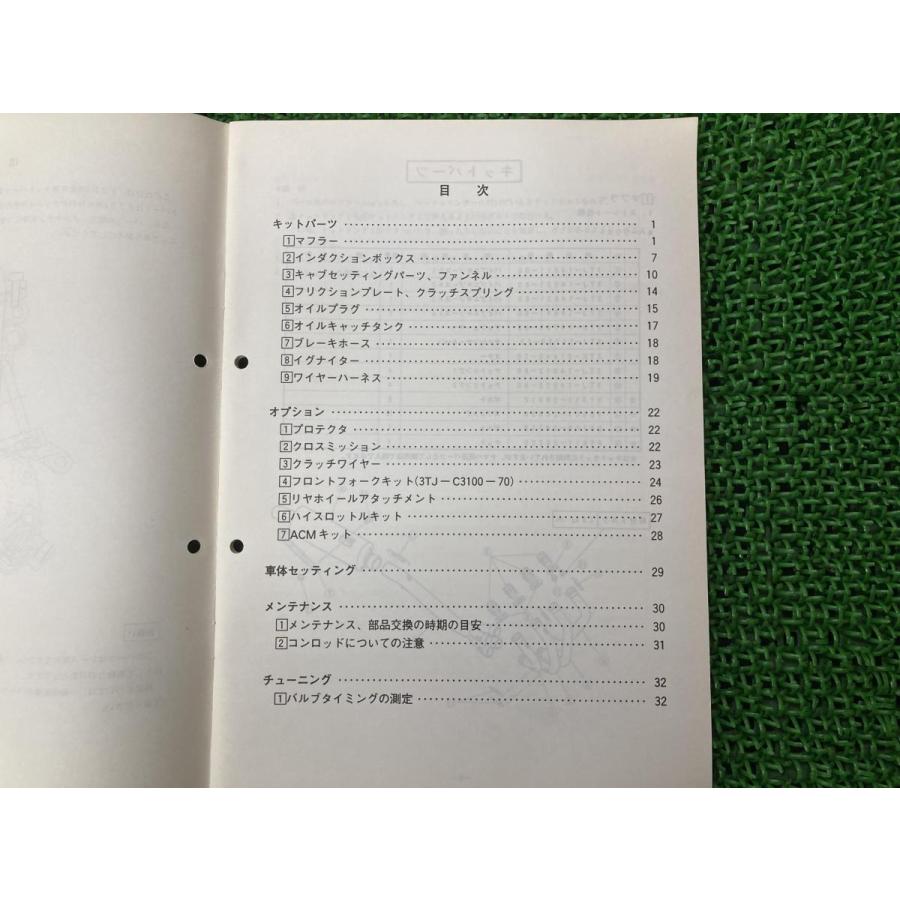 目 次
キットパーツ 1
1 マフラー 1
2 インダクションボックス 7
3 キャブセッティングパーツ、ファンネル 10
4 フリクションプレート、クラッチスプリング 14
5 オイルプラグ 15
6 オイルキャッチタンク 17
7 ブレーキホース 18
8 イグナイター 18
9 ワイヤーハーネス 19
オプション 22
1 プロテクタ 22
2 クロスミッション 22
3 クラッチワイヤー 23
4 フロントフォークキット(3TJ－C3100－70) 24
5 リヤホイールアタッチメント 26
6 ハイスロットルキット 27
7 ACMキット 28
車体セッティング 29
メンテナンス 30
1 メンテナンス、部品交換の時期の目安 30
2 コンロッドについての注意 31
チューニング 32
1 バルブタイミングの測定 32